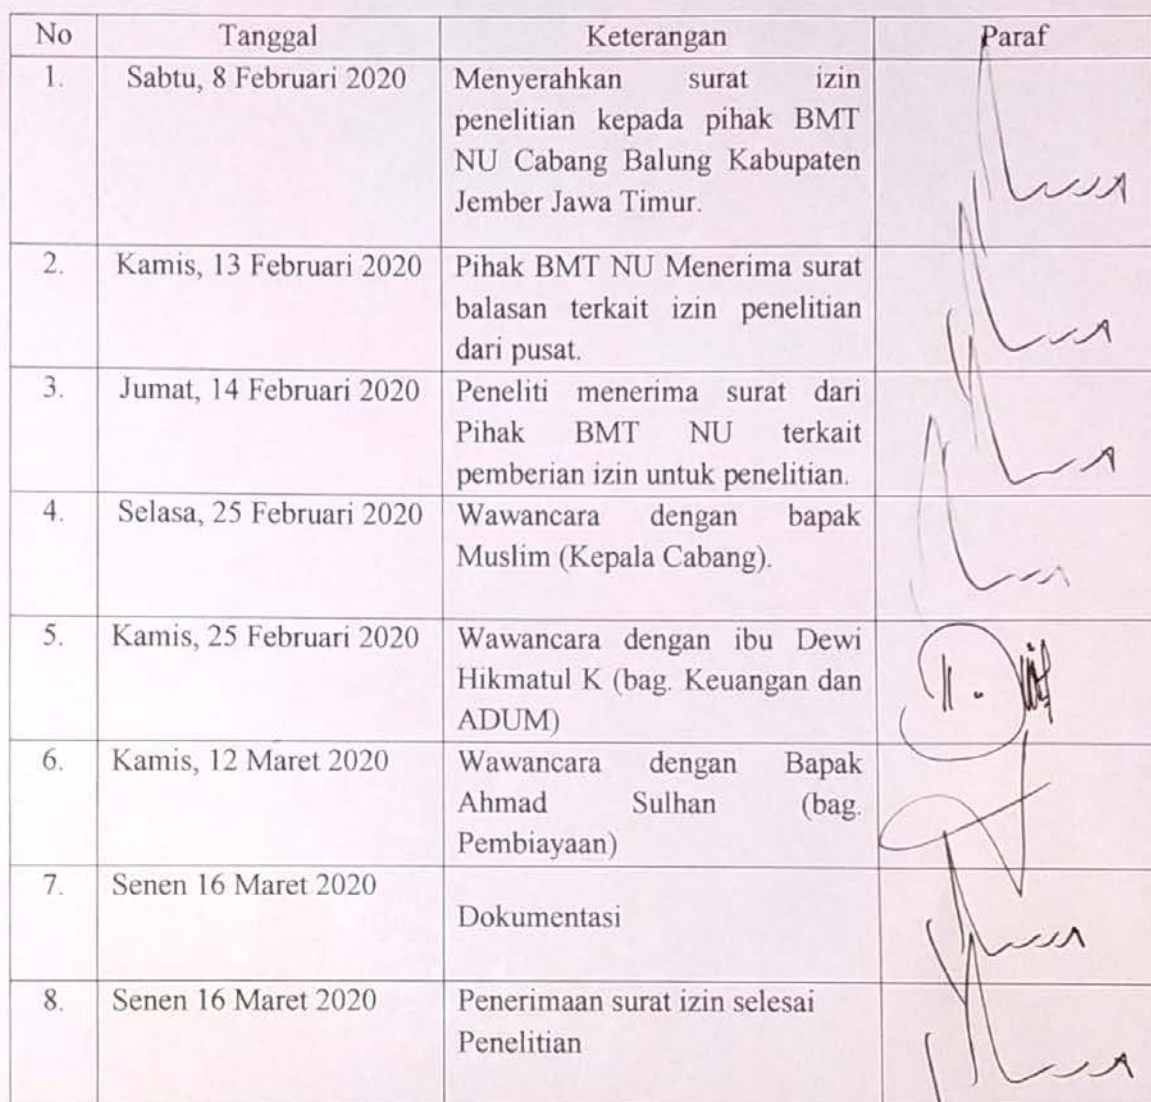 No Tanggal Keterangan Paraf
1. Sabtu, 8 Februari 2020 Menyerahkan surat izin
penelitian kepada pihak BMT
NU Cabang Balung Kabupaten
Jember Jawa Timur.
2. Kamis, 13 Februari 2020 Pihak BMT NU Menerima surat
balasan terkait izin penelitian
dari pusat.
3. Jumat, 14 Februari 2020 Peneliti menerima surat dari
Pihak BMT NU terkait
pemberian izin untuk penelitian.
4. Selasa, 25 Februari 2020 Wawancara dengan bapak
Muslim (Kepala Cabang).
5. Kamis, 25 Februari 2020 Wawancara dengan ibu Dewi
Hikmatul K (bag. Keuangan dan
ADUM)
6. Kamis, 12 Maret 2020 Wawancara dengan Bapak
Ahmad Sulhan (bag.
Pembiayaan)
7. Senen 16 Maret 2020
Dokumentasi
8. Senen 16 Maret 2020 Penerimaan surat izin selesai
Penelitian